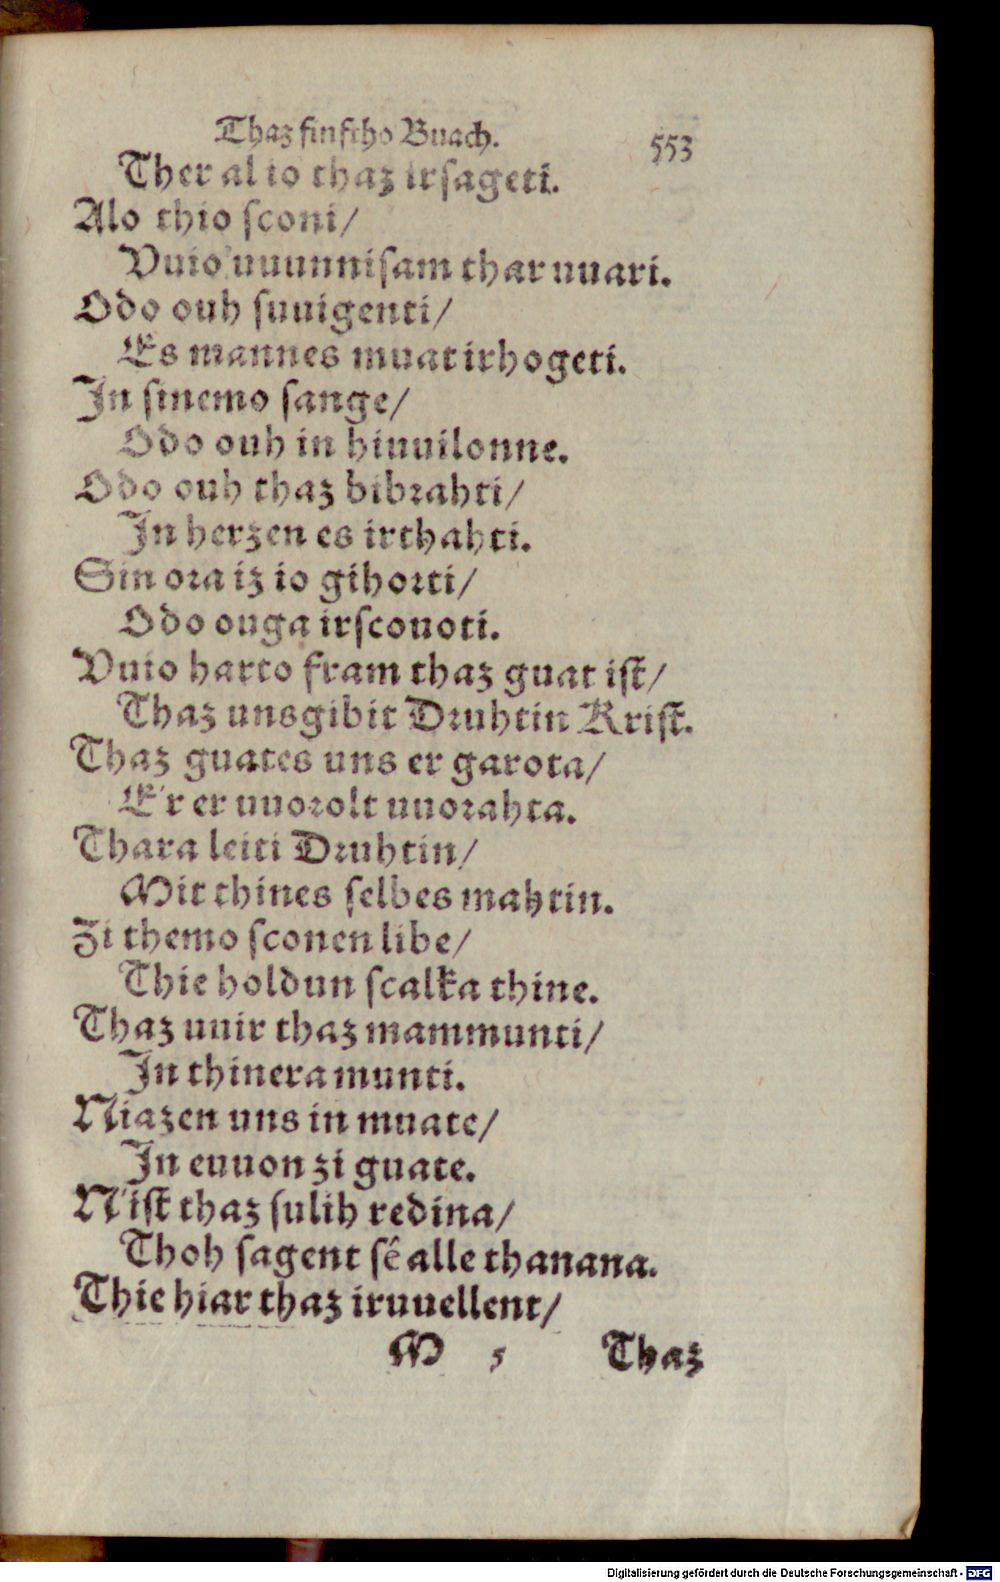 Thaz finftho Buach. 553
Ther al io thaz irsageti.
Alo thio sconi/
Vuio uuunnisam thar uuari.
Odo ouh suuigenti/
Es mannes muat irhogeti.
In sinemo sange/
Odo ouh in hiuuilonne.
Odo ouh thaz bibrahti/
In herzen es irthahti.
Sin ora iz io gihorti/
Odo ouga irscouoti.
Vuio harto fram thaz guat ist/
Thaz unsgibit Druhtin Krist.
Thaz guates uns er garota/
E'r er uuorolt uuorahta.
Thara leiti Druhtin/
Mit thines selbes mahtin.
Zi themo sconen libe/
Thie holdun scalka thine.
Thaz uuir thaz mammunti/
In thinera munti.
Niazen uns in muate/
In euuon zi guate.
N'ist thaz sulih redina/
Thoh sagent sê alle thanana.
Thie hiar thaz iruuellent/
M 5 Thaz
Digitalisierung gefördert durch die Deutsche Forschungsgemeinschaft - DFG